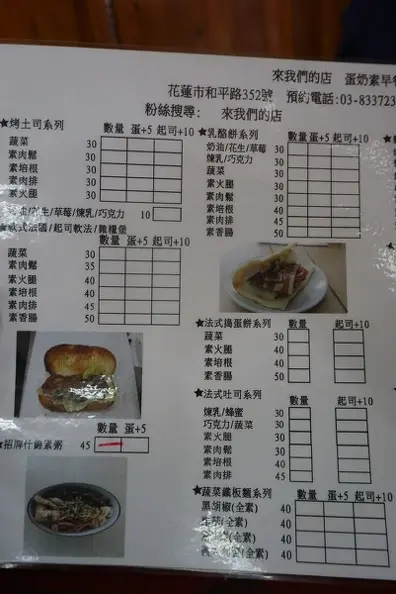 來我們的店 蛋奶素早
花蓮市和平路352號 預約電話:03-833723
粉絲搜尋: 來我們的店
★烤土司系列 數量 蛋+5 起司+10
蔬菜 30
素肉鬆 30
素培根 30
素肉排 30
素火腿 30
/花生/草莓/煉乳/巧克力 10
/起司軟法/雜糧堡
數量 蛋+5 起司+10
蔬菜 30
素肉鬆 35
素火腿 40
素培根 40
素肉排 45
素香腸 50
數量
★招牌什錦素粥 45
★乳酪餅系列 數量 蛋+5 起司+10
奶油/花生/草莓 30
煉乳/巧克力 30
蔬菜 30
素火腿 30
素肉鬆 30
素培根 40
素肉排 45
素香腸 50
★法式搗蛋餅系列 數量 起司+10
蔬菜 30
素火腿 30
素培根 40
素香腸 50
★法式吐司系列 數量 起司+10
煉乳/蜂蜜 30
巧克力/蔬菜 30
素火腿 30
素肉鬆 30
素培根 40
素肉排 45
★蔬菜鐵板麵系列 數量 蛋+5 起司+10
黑胡椒(全素) 40
(全素) 40
(全素) 40
(全素) 40